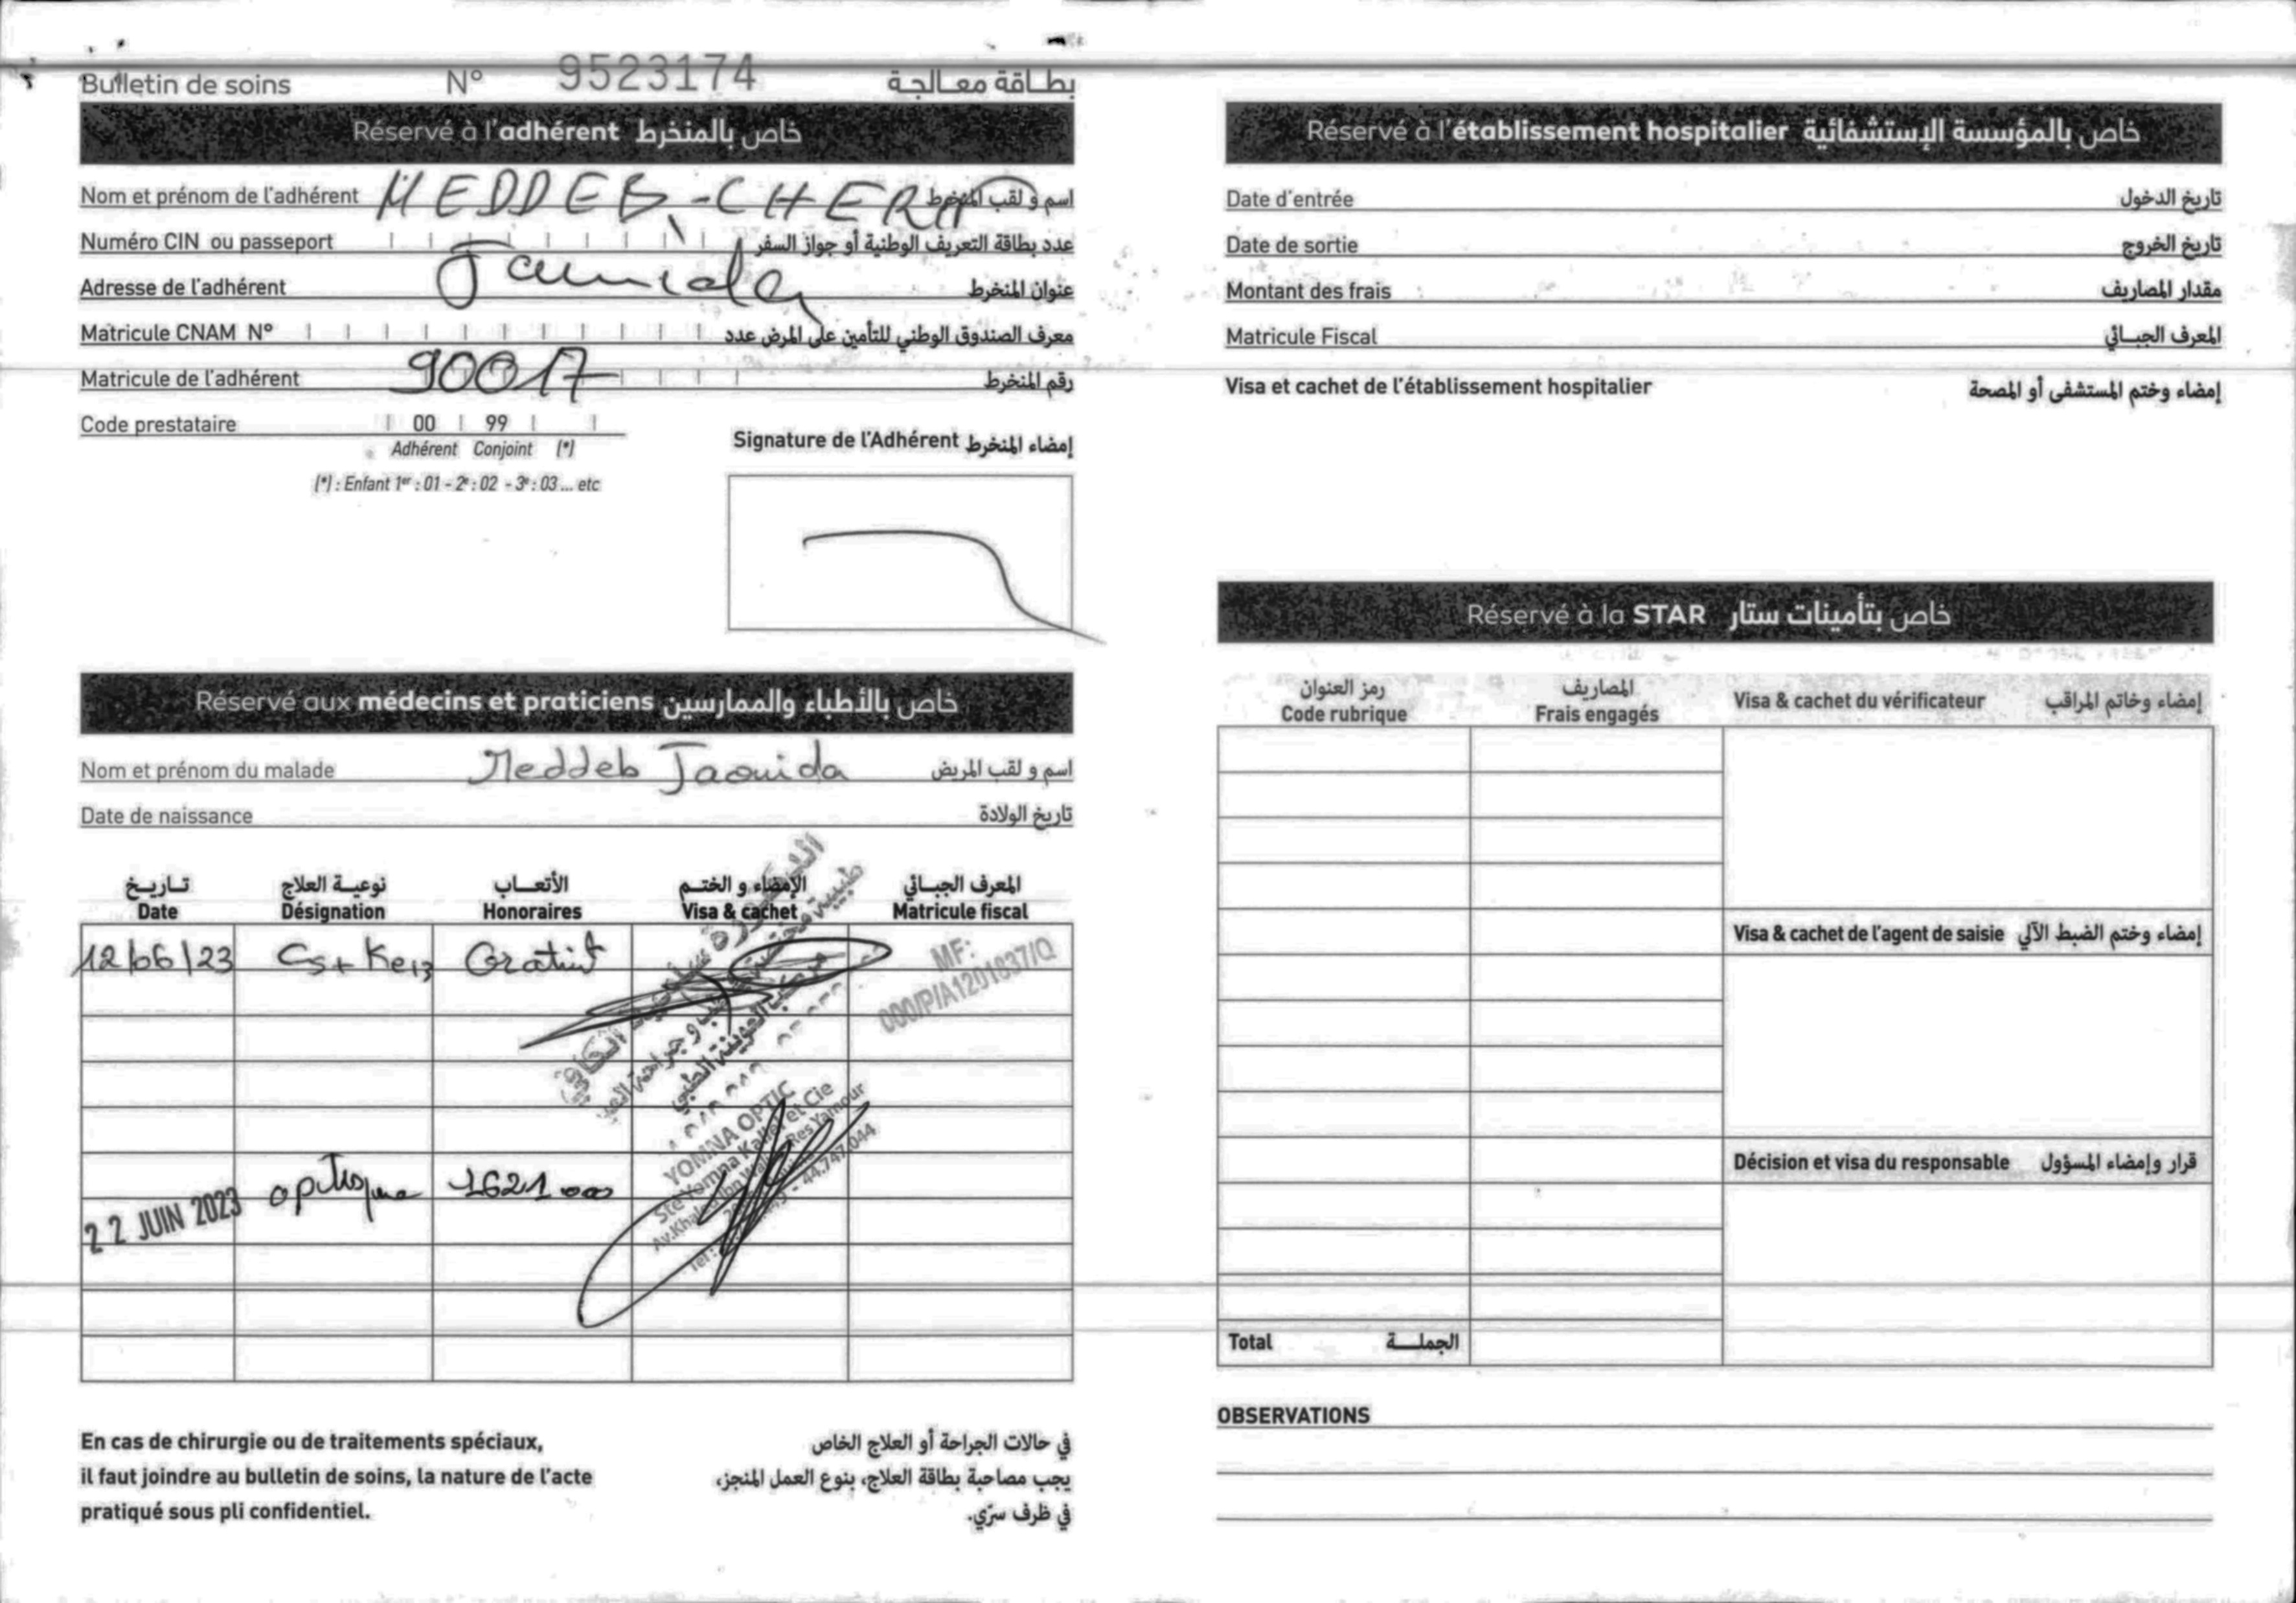 Bulletin de soins N° 9523174 بطاقة معالجة
Réservé à l'adhérent خاص بالمنخرط
Nom et prénom de l'adhérent MEDDEB-CHERIF اسم و لقب المنخرط
Numéro CIN ou passeport عدد بطاقة التعريف الوطنية أو جواز السفر
Adresse de l'adhérent Jaouida عنوان المنخرط
Matricule CNAM N° معرف الصندوق الوطني للتأمين على المرض عدد
Matricule de l'adhérent 90017 رقم المنخرط
Code prestataire 00 99
Adhérent Conjoint (*)
(*) : Enfant 1er : 01 - 2e : 02 - 3e : 03 ... etc
Signature de l'Adhérent إمضاء المنخرط
Réservé aux médecins et praticiens خاص بالأطباء والممارسين
Nom et prénom du malade Meddeb Jaouida اسم و لقب المريض
Date de naissance تاريخ الولادة
تاريخ نوعية العلاج الأتعاب الإمضاء و الختم المعرف الجبائي
Date Désignation Honoraires Visa & cachet Matricule fiscal
12/06/23 Gratuit
MF:
000/P/A1201637/Q
YOMNA OPTIC
Ste Yomna Kallel et Cie
Res Yamour
44.747.044
22 JUIN 2023 optique 1621000
En cas de chirurgie ou de traitements spéciaux,
il faut joindre au bulletin de soins, la nature de l'acte
pratiqué sous pli confidentiel.
في حالات الجراحة أو العلاج الخاص
يجب مصاحبة بطاقة العلاج، بنوع العمل المنجز،
في ظرف سرّي.
Réservé à l'établissement hospitalier خاص بالمؤسسة الإستشفائية
Date d'entrée تاريخ الدخول
Date de sortie تاريخ الخروج
Montant des frais مقدار المصاريف
Matricule Fiscal المعرف الجبائي
Visa et cachet de l'établissement hospitalier إمضاء وختم المستشفى أو المصحة
Réservé à la STAR خاص بتأمينات ستار
رمز العنوان المصاريف
Code rubrique Frais engagés Visa & cachet du vérificateur إمضاء وخاتم المراقب
Visa & cachet de l'agent de saisie إمضاء وختم الضبط الآلي
Décision et visa du responsable قرار وإمضاء المسؤول
Total الجملة
OBSERVATIONS